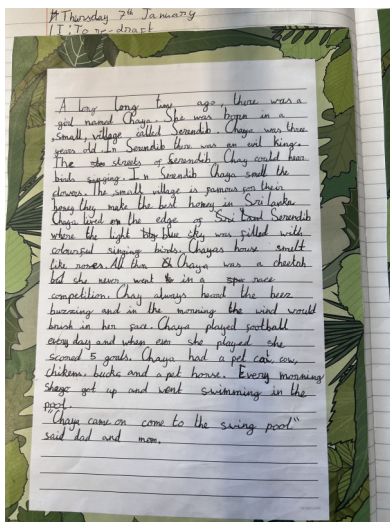 Thursday 7th January
LI: To re-draft
A long long time ago, there was a
girl named Chaya. She was born in a
small, village called Serendib. Chaya was three
years old. In Serendib there was an evil king.
The streets of Serendib. Chay could hear
birds singing. In Serendib Chaya smell the
flowers. The small village is famous for their
honey they make the best honey in Sri lanka
Chaya lived on the edge of Serendib
where the light blue sky was filled with
colourful singing birds. Chayas house smelt
like roses. All thin Chaya was a cheetah
but she never went in a race
competition. Chay always heard the beez
buzzing and in the morning the wind would
brush in her face. Chaya played football
every day and when ever she played she
scored 5 goals. Chaya had a pet cow,
chikens, bucks and a pet horse. Every morning
got up and went swimming in the
pool.
"Chaya came on come to the swing pool"
said dad and mom.